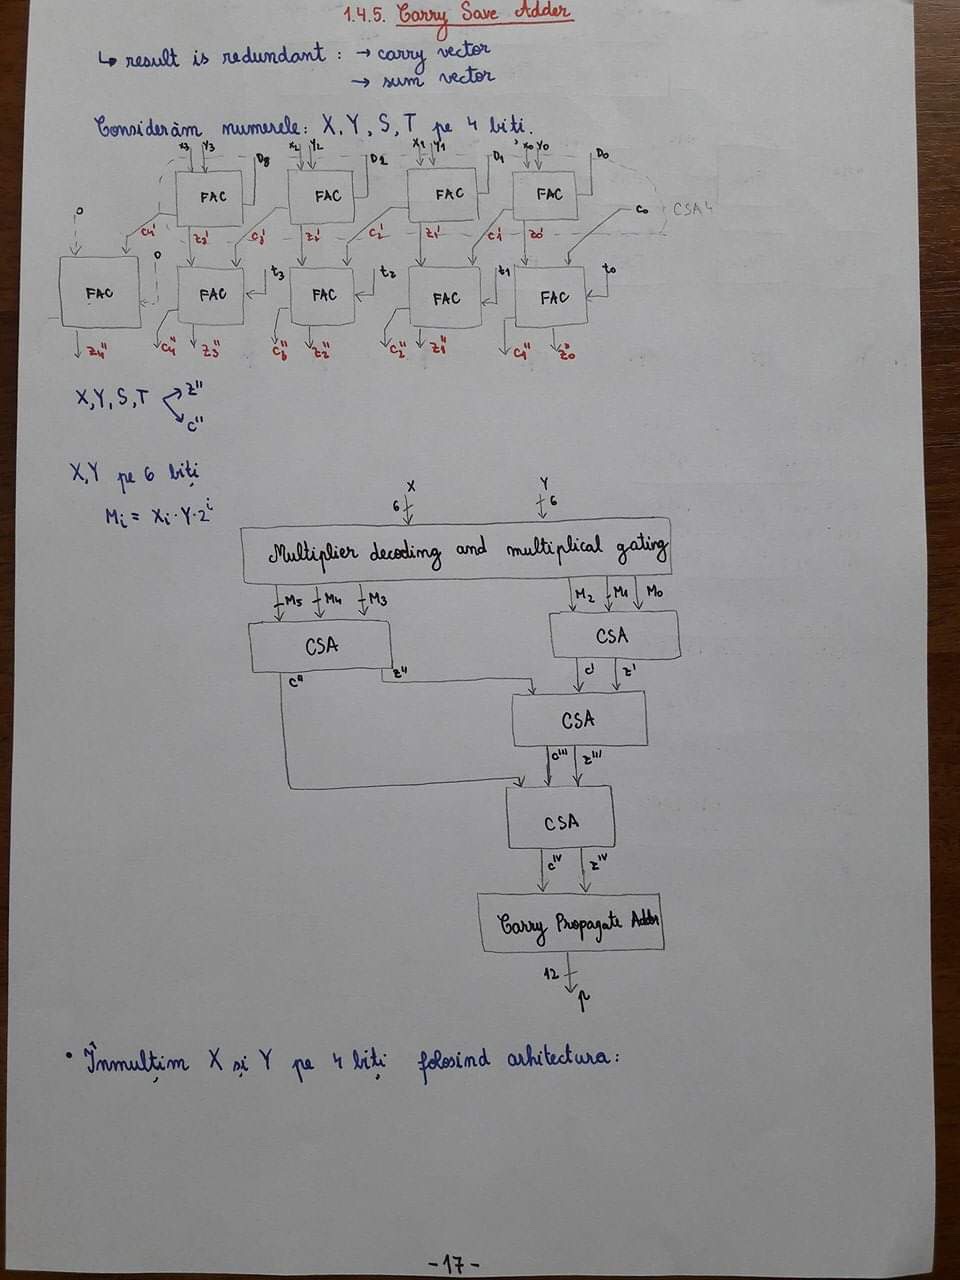 1.4.5. Carry Save Adder
↳ result is redundant : → carry vector
→ sum vector
Considerăm numerele: X, Y, S, T pe 4 biti.
x3 Y3 D3 x2 Y2 D2 X1 Y1 D1 x0 Y0 D0
FAC FAC FAC FAC
0 C4' z3' C3' z2' C2' z1' C1' z0' C0 CSA4
0 t3 t2 t1 t0
FAC FAC FAC FAC FAC
z4'' C4'' z3'' C3'' z2'' C2'' z1'' C1'' z0''
X,Y,S,T z''
c''
X,Y pe 6 biți
Mi = Xi·Y·2^i
X Y
6 6
Multiplier decoding and multiplical gating
M5 M4 M3 M2 M1 M0
CSA CSA
c'' z'' c' z'
CSA
c''' z'''
CSA
c^IV z^IV
Carry Propagate Adder
12
p
• Înmulțim X și Y pe 4 biți folosind arhitectura:
-17-